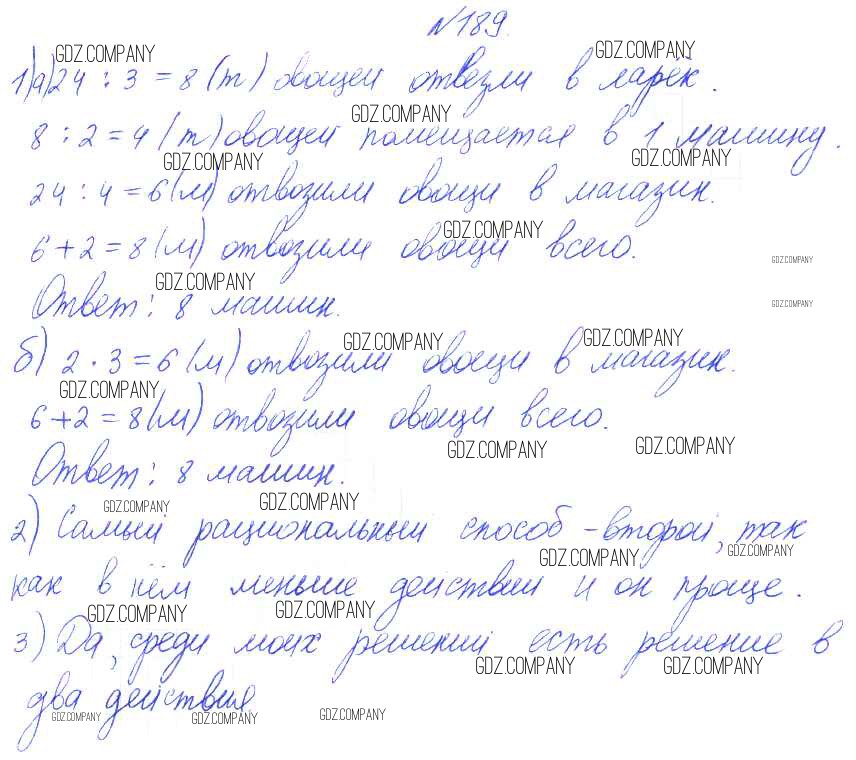 №189.
GDZ.COMPANY GDZ.COMPANY
1)а) 24 : 3 = 8 (т) овощей отвезли в ларёк.
GDZ.COMPANY
8 : 2 = 4 (т) овощей помещается в 1 машину.
GDZ.COMPANY GDZ.COMPANY
24 : 4 = 6 (м) отвозили овощи в магазин.
GDZ.COMPANY
6 + 2 = 8 (м) отвозили овощи всего.
GDZ.COMPANY
GDZ.COMPANY
Ответ: 8 машин.
GDZ.COMPANY
GDZ.COMPANY GDZ.COMPANY
б) 2 · 3 = 6 (м) отвозили овощи в магазин.
GDZ.COMPANY
6 + 2 = 8 (м) отвозили овощи всего.
GDZ.COMPANY GDZ.COMPANY
Ответ: 8 машин.
GDZ.COMPANY GDZ.COMPANY
2) Самый рациональный способ - второй, так
GDZ.COMPANY GDZ.COMPANY
как в нём меньше действий и он проще.
GDZ.COMPANY GDZ.COMPANY
3) Да, среди моих решений есть решение в
GDZ.COMPANY GDZ.COMPANY
два действия.
GDZ.COMPANY GDZ.COMPANY GDZ.COMPANY